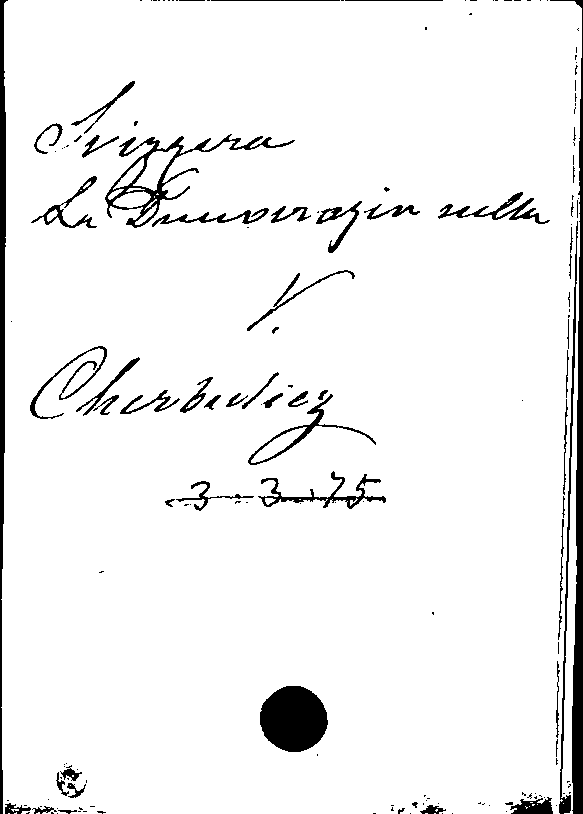 Svizzera
La Democrazia nella
V.
Cherbuliez
3.3.75